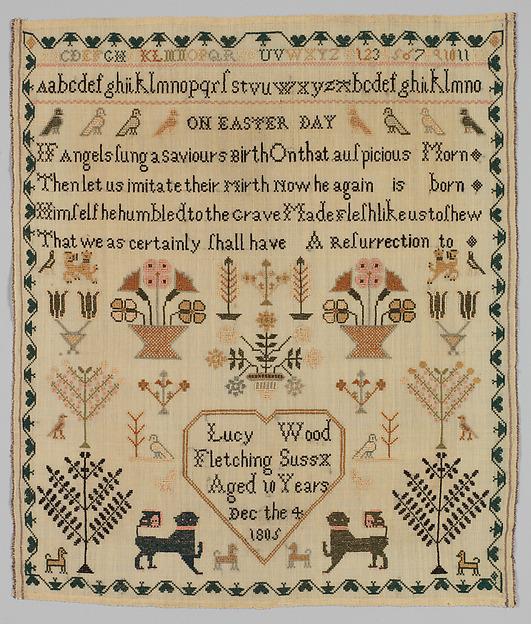 CDEFGH KLMNOPQR UVWXYZ 123 567 9 10 11
Aabcdefghijklmnopqrſstvuwxyzabcdefghiklmno
ON EASTER DAY
IF Angels ſung a Saviours BIrth On that auſpicious Morn
Then let us imitate their Mirth Now he again is born
Himſelf he humbled to the Grave Made Fleſh like us to ſhew
That we as certainly ſhall have A Reſurrection to
Lucy Wood
Fletching Sussx
Aged 10 Years
Dec the 4
1805